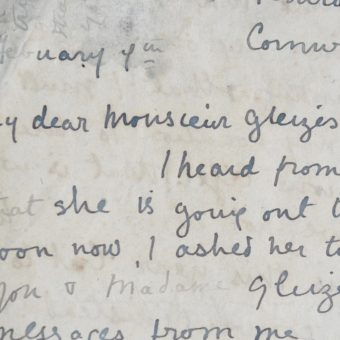 Cornw
bruary 4th
y dear Monsieur Gleizes
I heard from
that she is going out t
oon now, I asked her to
you & Madame Gleize
messages from me